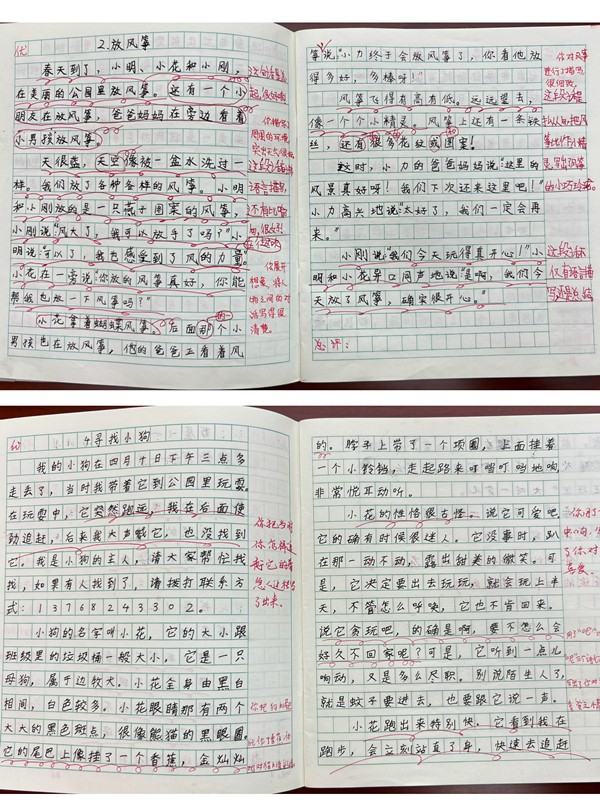 优
2.放风筝
春天到了，小明、小花和小刚，
在美丽的公园里放风筝。还有一个小
朋友在放风筝，爸爸妈妈在旁边看着
小男孩放风筝。
天很蓝，天空像被一盆水洗过一
样。我们放了各种各样的风筝。小明
和小刚放的是一只燕子图案的风筝，
小刚说“风大了，我可以放手了吗？”小
明说：“可以了，我也感受到了风的力量。”
小花在一旁说：“你放的风筝真好，你能
帮我也放一下风筝吗？”
小花拿着蝴蝶风筝，后面那个小
男孩也在放风筝，他的爸爸正看着风
筝说“小力终于会放风筝了，你看他放
得多好，多棒呀！”
风筝飞得有高有低。远远望去，
像一个个小精灵。风筝上还有一条铁
丝，还有很多花纹或图案！
这时，小力的爸爸妈妈说：“这里的
风景真好呀！我们下次还来这里吧！”
小力高兴地说：“太好了，我们一定会再
来。”
小刚说：“我们今天玩得真开心！”小
明和小花异口同声地说：“是啊，我们今
天放了风筝，确实很开心。”
总评：
优
4寻找小狗
我的小狗在四月十日下午三点多
走丢了，当时我带着它到公园里玩耍。
在玩耍中，它突然跑远，我在后面使
劲追赶，后来我大声喊它，也没找到
它。我是小狗的主人，请大家帮忙找
找，如果有人找到了，请拨打联系方
式：13768243302。
小狗的名字叫小花，它的大小跟
班级里的垃圾桶一般大小，它是一只
母狗，属于边牧犬。小花全身由黑白
相间，白色较多。小花眼睛那有两个
大大的黑色斑点，很像熊猫的黑眼圈。
它的尾巴上像挂了一个香蕉，金灿灿
的。脖子上带了一个项圈，上面挂着
一个小铃铛，走起路来叮当叮当地响
非常悦耳动听。
小花的性格很古怪。说它可爱吧
它的确有时候很迷人。它没事时，趴
在那一动不动，露出甜美的微笑。可
是，它决定要出去玩玩，就会玩上半
天，不管怎么呼唤，它也不肯回来。
说它贪玩吧，的确是啊，要不怎么会
好久不回家呢？可是，它听到一点儿
响动，又是多么尽职。别说陌生人了，
就是蚊子要进去，也要跟它说一声。
小花跑出来特别快，它看到我在
跑步，会立刻站直了身，快速去追赶